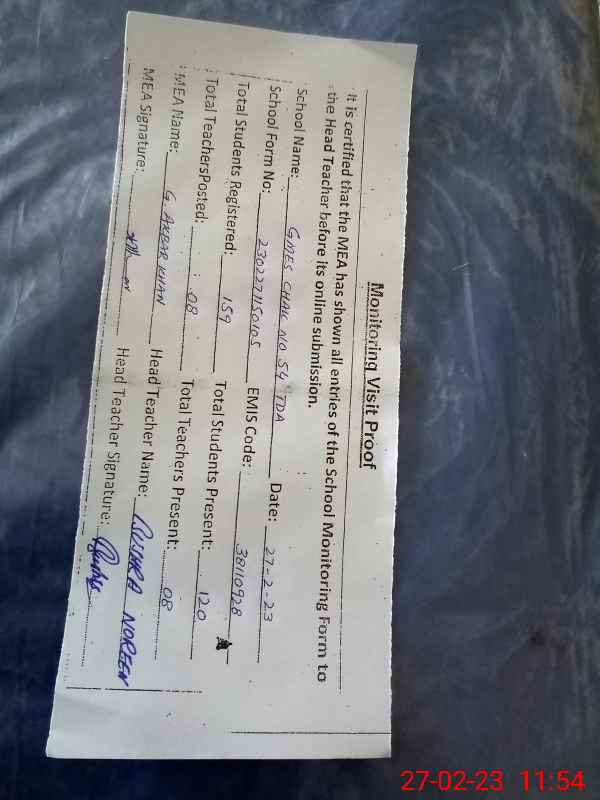 Monitoring Visit Proof
It is certified that the MEA has shown all entries of the School Monitoring Form to
the Head Teacher before its online submission.
School Name: GMES CHAK NO 54 TDA Date: 27-2-23
School Form No: 230227150105 EMIS Code: 38110928
Total Students Registered: 159 Total Students Present: 120
Total TeachersPosted: 08 Total Teachers Present: 08
MEA Name: G AKBAR KHAN Head Teacher Name: BUSHRA NOREEN
MEA Signature: Head Teacher Signature:
27-02-23 11:54